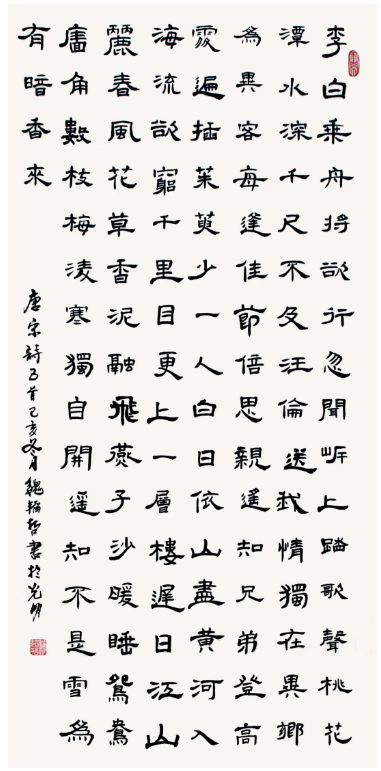 李白乘舟將欲行忽聞岸上踏歌聲桃花
潭水深千尺不及汪倫送我情獨在異鄉
為異客每逢佳節倍思親遙知兄弟登高
處遍插茱萸少一人白日依山盡黃河入
海流欲窮千里目更上一層樓遲日江山
麗春風花草香泥融飛燕子沙暖睡鴛鴦
牆角數枝梅淩寒獨自開遙知不是雪為
有暗香來
唐宋詩五首己亥冬月魏哲書於光明